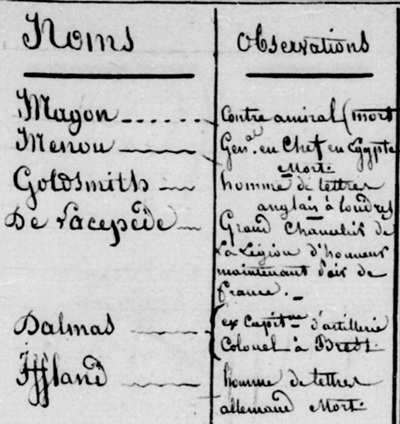 Noms Observations
Magon Contre amiral (mort
Menou Genal. en Chef en Egypte
Mort.
Goldsmith homme de lettres
anglais à Londres
De Lacepède Grand Chancelier de
La Légion d'honneur
maintenant Pair de
france.
Dalmas ex Capitne d'artillerie
Colonel à Brest.
Iffland homme de lettres
allemand Mort.